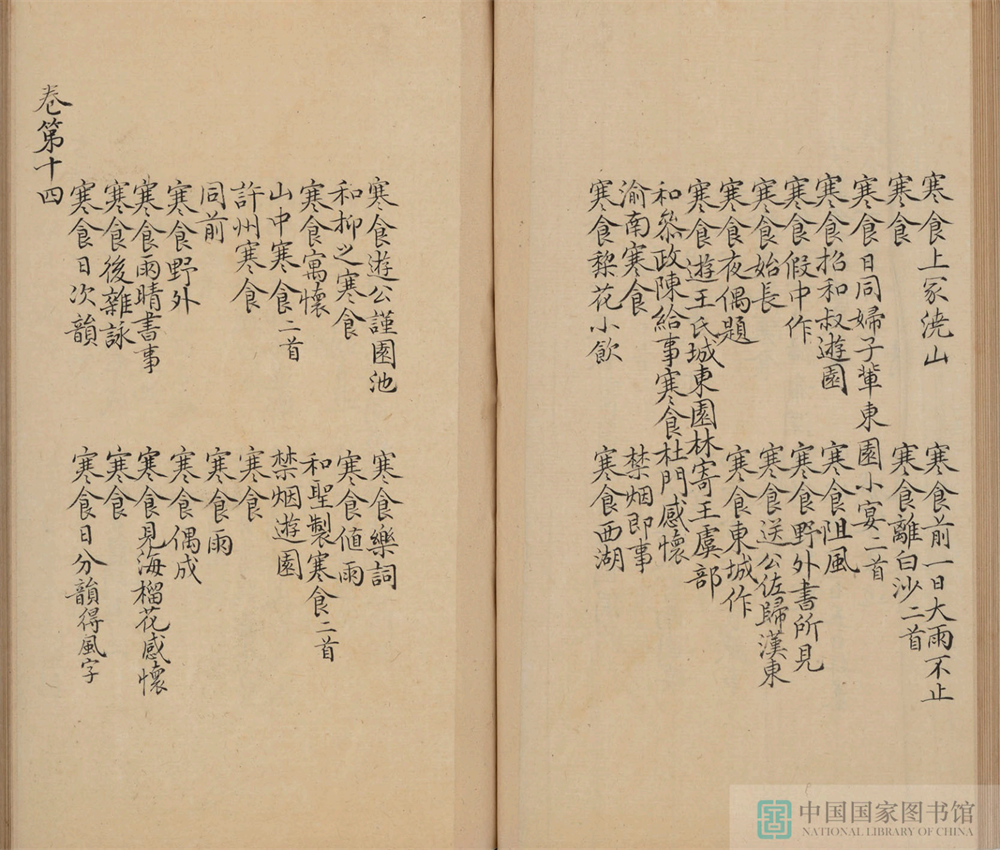 寒食上冢澆山　寒食前一日大雨不止
寒食　寒食離白沙二首
寒食日同婦子輩東園小宴二首
寒食招和叔遊園　寒食阻風
寒食假中作　寒食野外書所見
寒食始長　寒食送公佐歸漢東
寒食夜偶題　寒食東城作
寒食遊王氏城東園林寄王虞部
和叅政陳給事寒食杜門感懷
渝南寒食　禁烟即事
寒食棃花小飲　寒食西湖
寒食遊公謹園池　寒食樂詞
和抑之寒食　寒食値雨
寒食寓懷　和聖製寒食二首
山中寒食二首　禁烟遊園
許州寒食　寒食
同前　寒食雨
寒食野外　寒食偶成
寒食雨晴書事　寒食見海榴花感懷
寒食後雜詠　寒食
寒食日次韻　寒食日分韻得風字
卷第十四
中国国家图书馆
NATIONAL LIBRARY OF CHINA